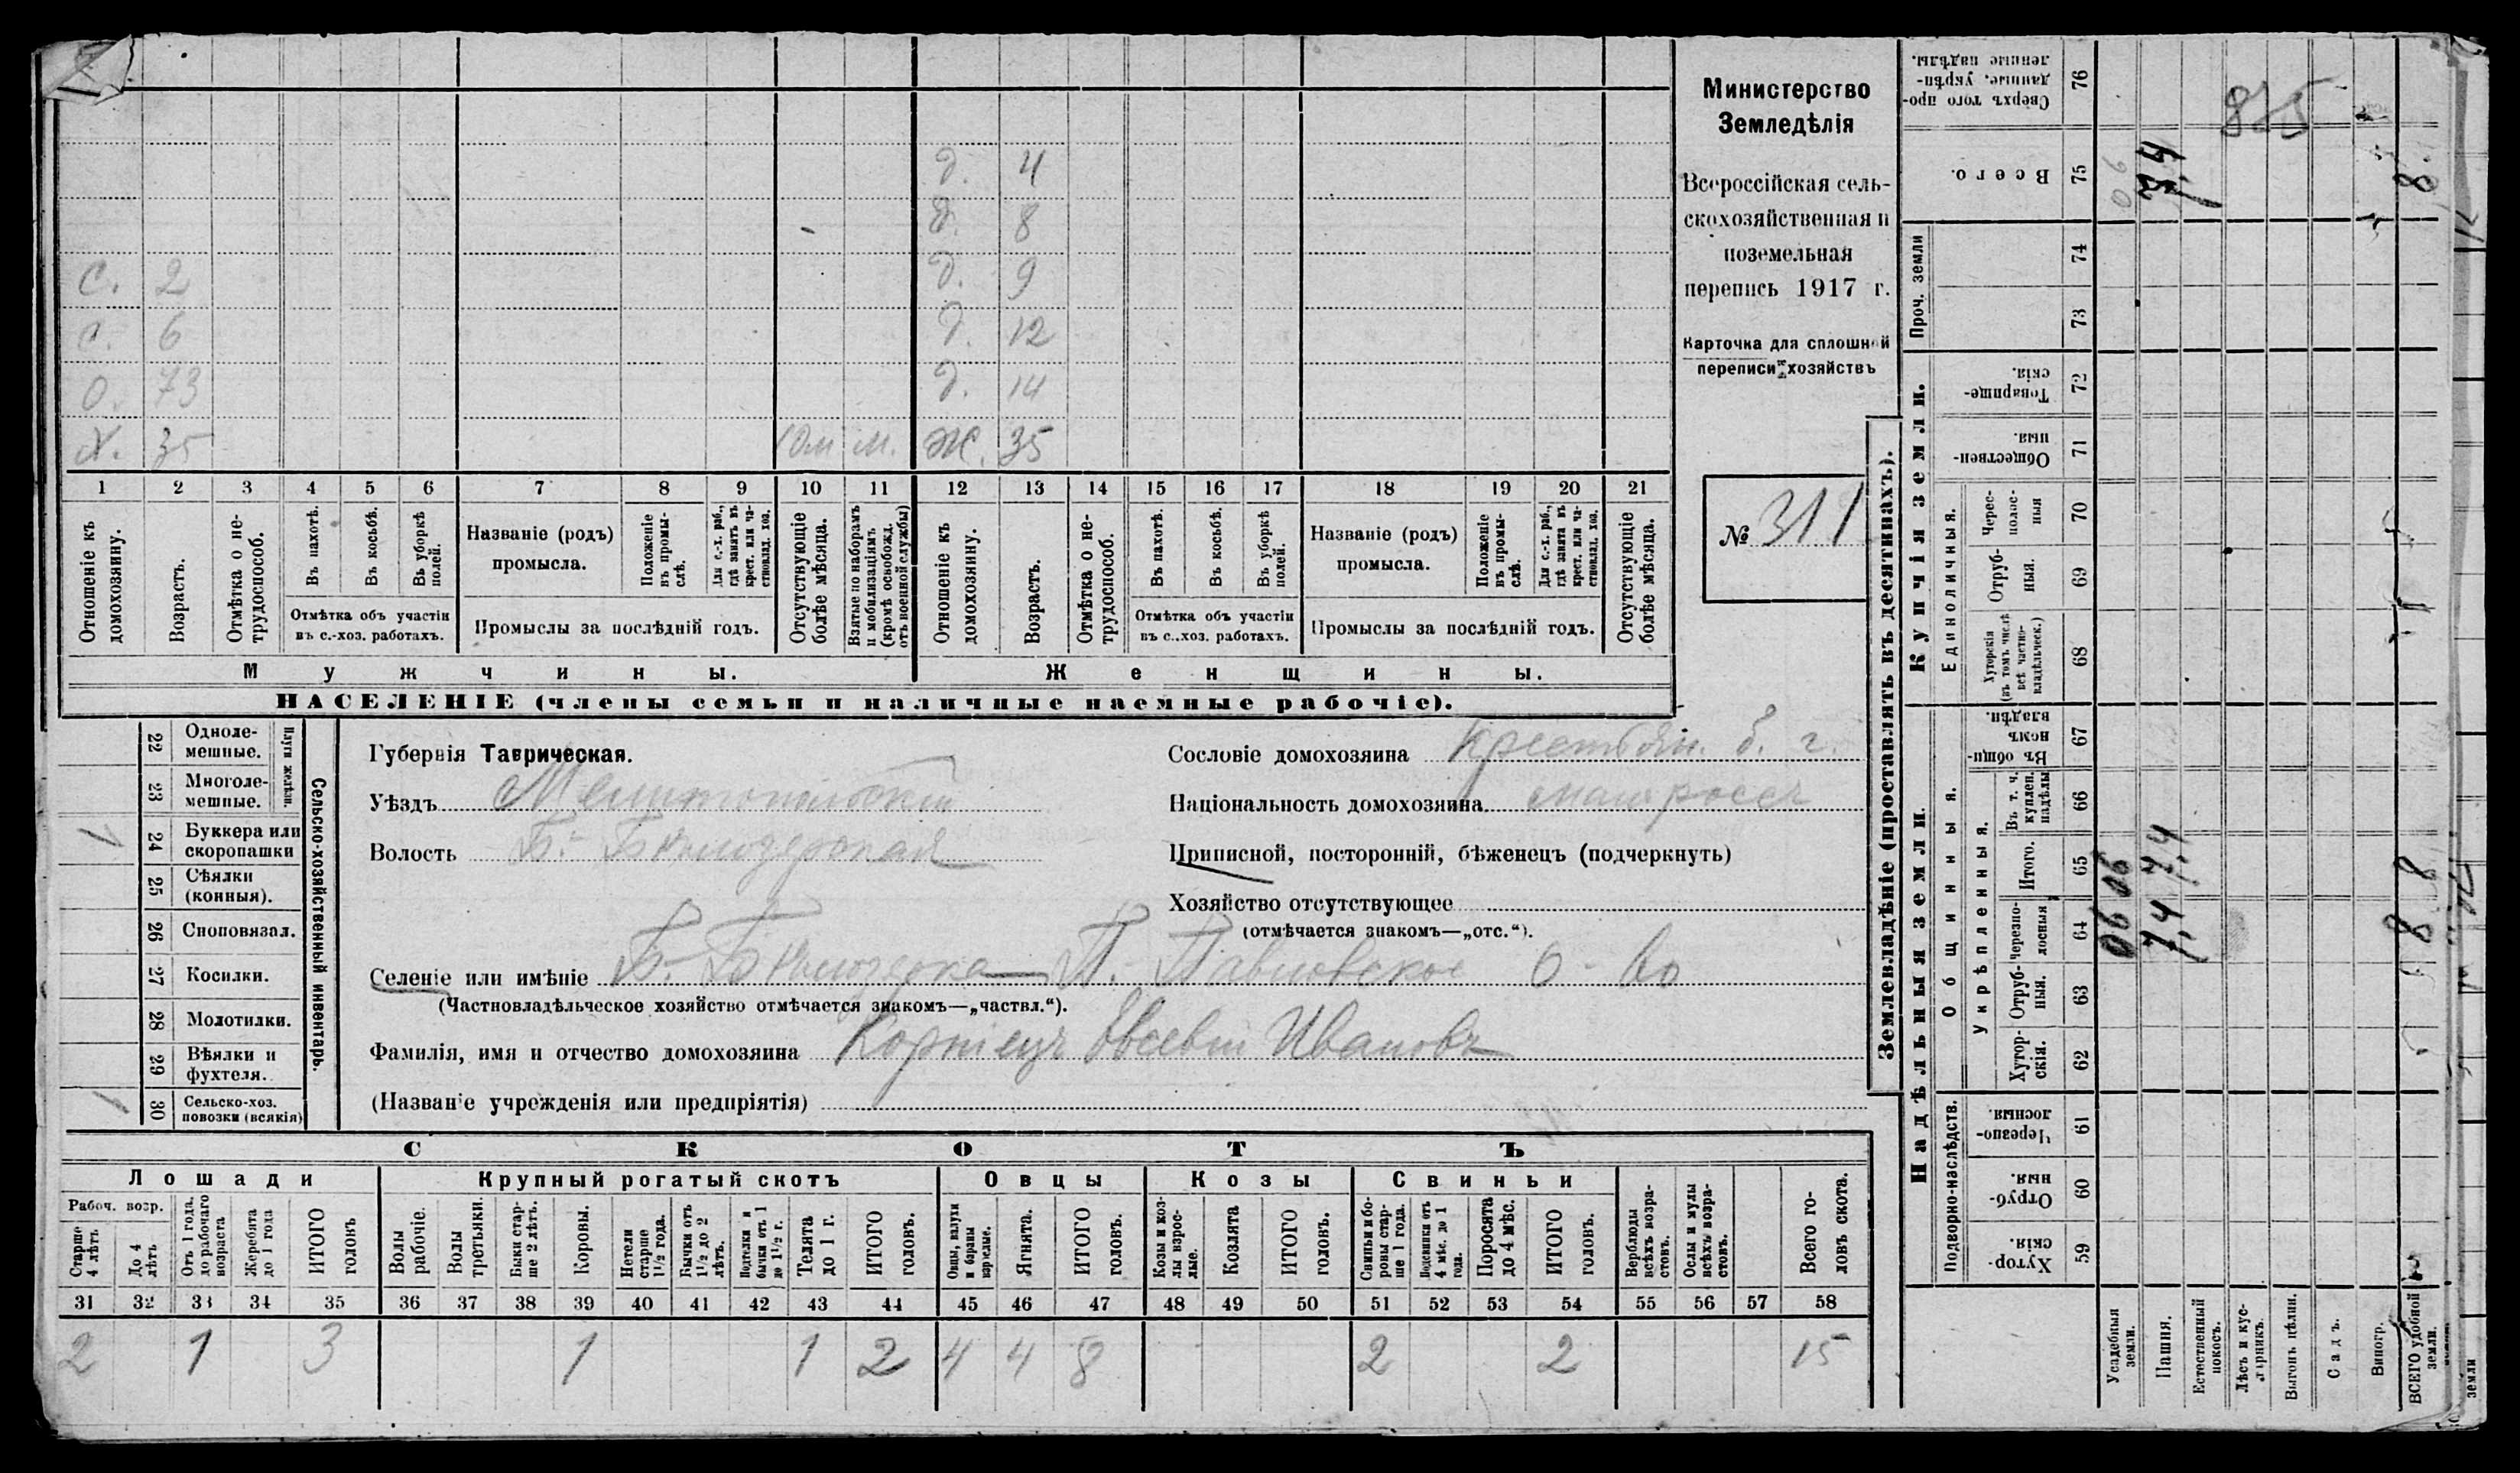 Министерство
Земледѣлія
Всероссійская сель-
скохозяйственная и
поземельная
перепись 1917 г.
Карточка для сплошной
переписи хозяйствъ
№ 311
д. 4
д. 8
с. 2 д. 9
с. 6 д. 12
о. 73 д. 14
х. 35 м. ж. 35
1 2 3 4 5 6 7 8 9 10 11 12 13 14 15 16 17 18 19 20 21
Отношеніе къ домохозяину.
Возрастъ.
Отмѣтка о не-трудоспособ.
Въ пахотѣ.
Въ косьбѣ.
Въ уборкѣ полей.
Отмѣтка объ участіи
въ с.-хоз. работахъ.
Названіе (родъ)
промысла.
Положеніе въ промы-слѣ.
Для с.-х. раб., гдѣ занятъ въ крест. или ча-стновлад. хоз.
Промыслы за послѣдній годъ.
Отсутствующіе болѣе мѣсяца.
Взятые по наборамъ и мобилизаціямъ (кромѣ освобожд. отъ военной службы)
Отношеніе къ домохозяину.
Возрастъ.
Отмѣтка о не-трудоспособ.
Въ пахотѣ.
Въ косьбѣ.
Въ уборкѣ полей.
Отмѣтка объ участіи
въ с.-хоз. работахъ.
Названіе (родъ)
промысла.
Положеніе въ промы-слѣ.
Для с.-х. раб., гдѣ занята въ крест. или ча-стновлад. хоз.
Промыслы за послѣдній годъ.
Отсутствующіе болѣе мѣсяца.
Мужчины. Женщины.
НАСЕЛЕНІЕ (члены семьи и наличные наемные рабочіе).
22 Одноле-мешные.
23 Многоле-мешные.
Плуги желѣзн.
24 Буккера или скоропашки 1
25 Сѣялки (конныя).
26 Сноповязал.
27 Косилки.
28 Молотилки.
29 Вѣялки и фухтеля.
30 Сельско-хоз. повозки (всякія) 1
Сельско-хозяйственный инвентарь.
Губернія Таврическая.
Уѣздъ Мелитопольскій
Волость Б.-Бѣлозерская
Сословіе домохозяина Крестьян. б. г.
Національность домохозяина малоросс
Приписной, посторонній, бѣженецъ (подчеркнуть)
Хозяйство отсутствующее
(отмѣчается знакомъ—„отс.“).
Селеніе или имѣніе Б.-Бѣлозерка — П.-Павловское О-во
(Частновладѣльческое хозяйство отмѣчается знакомъ—„частвл.“).
Фамилія, имя и отчество домохозяина Корніецъ Евсевій Ивановъ
(Названіе учрежденія или предпріятія)
СКОТЪ
Лошади Крупный рогатый скотъ Овцы Козы Свиньи
Рабоч. возр.
Старше 4 лѣтъ
До 4 лѣтъ
Отъ 1 года до рабочаго возраста
Жеребята до 1 года
ИТОГО головъ
Волы рабочіе.
Волы третьяки.
Быки стар-ше 2 лѣтъ.
Коровы.
Нетели старше 1½ года.
Бычки отъ 1½ до 2 лѣтъ.
Подтелки и бычки отъ 1 до 1½ г.
Телята до 1 г.
ИТОГО головъ.
Овцы, валухи и бараны взрослые.
Ягнята.
ИТОГО головъ.
Козы и коз-лы взрос-лые.
Козлята
ИТОГО головъ.
Свиньи и бо-ровы стар-ше 1 года.
Подсвинки отъ 4 мѣс. до 1 года.
Поросята до 4 мѣс.
ИТОГО головъ.
Верблюды всѣхъ возра-стовъ.
Ослы и мулы всѣхъ возра-стовъ.
Всего го-ловъ скота.
31 32 33 34 35 36 37 38 39 40 41 42 43 44 45 46 47 48 49 50 51 52 53 54 55 56 57 58
2 1 3 1 1 2 4 4 8 2 2 15
Землевладѣніе (проставлять въ десятинахъ).
Надѣльныя земли. Купчія земли.
Подворно-наслѣдств.
Общинныя.
Укрѣпленныя.
Единоличныя.
Проч. земли
59 Хутор-скія.
60 Отруб-ныя.
61 Черезпо-лосныя.
62 Хутор-скія.
63 Отруб-ныя.
64 Черезпо-лосныя
65 Итого.
66 Въ т. ч. куплен. надѣлы
67 Въ общин-номъ владѣн.
68 Хуторскія (въ томъ числѣ всѣ частно-владѣльческ.)
69 Отруб-ныя.
70 Черес-полос-ныя
71 Обществен-ныя.
72 Товарище-скія.
73
74
75 Всего.
76 Сверхъ того про-данные, укрѣп-ленные надѣлы.
Усадебныя земли. 06 06 06
Пашня. 7,4 7,4 7,4
Естественный покосъ.
Лѣсъ и кус-тарникъ.
Выгонъ цѣлин.
Садъ.
Виногр.
ВСЕГО удобной земли. 8 8 8
875